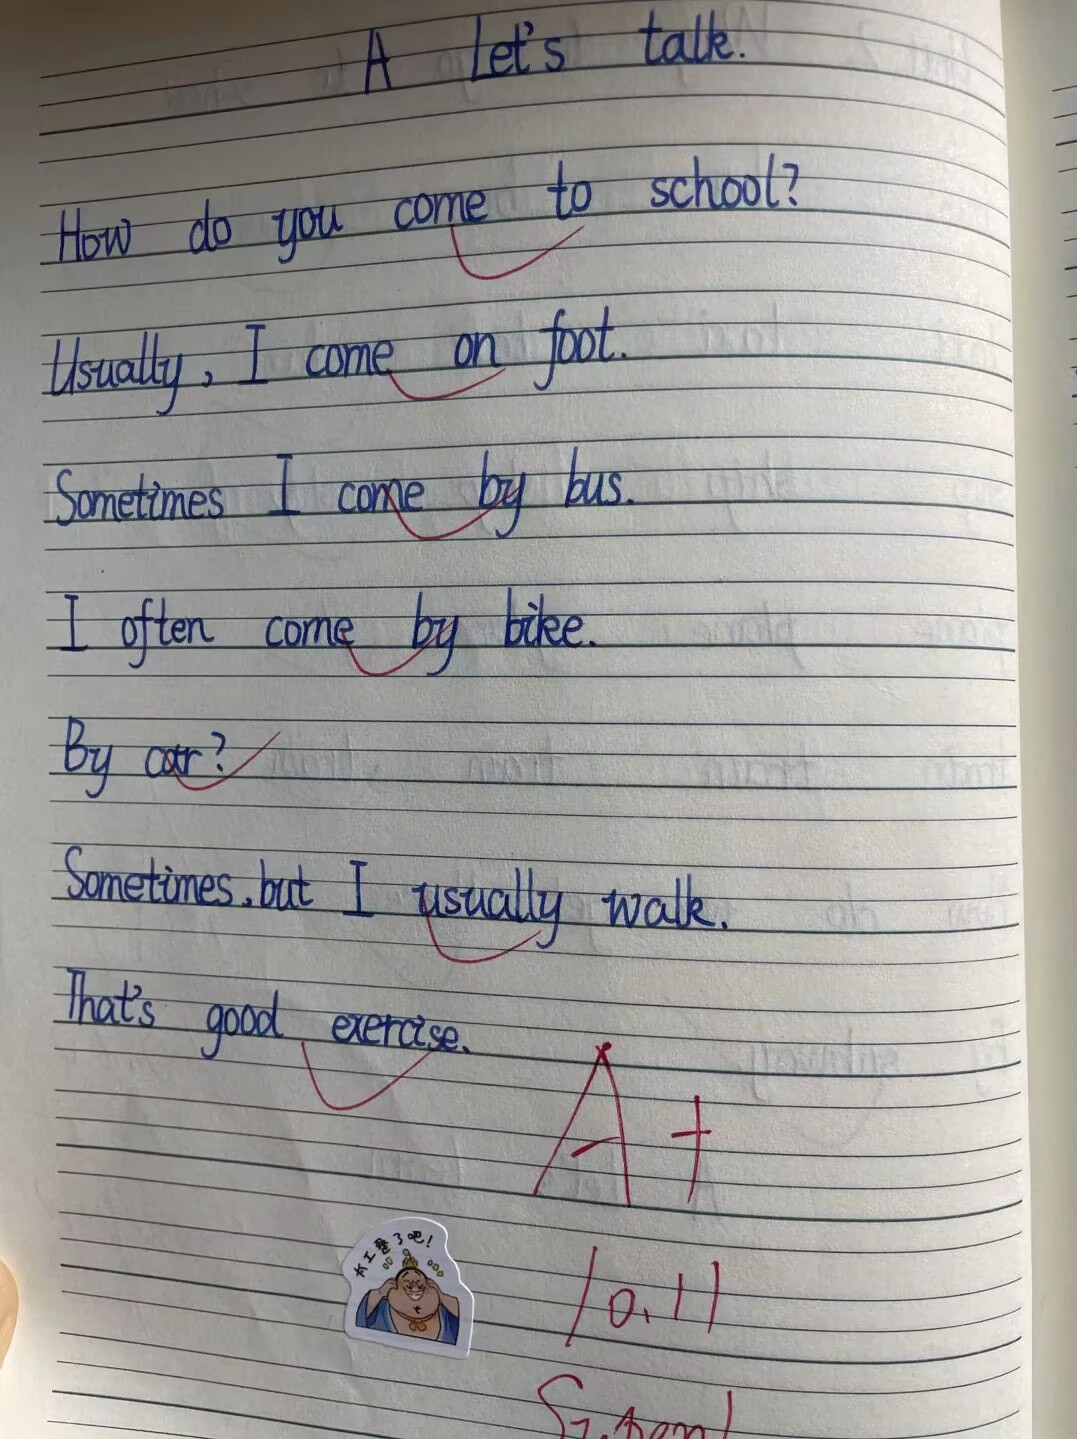 A Let's talk.
How do you come to school?
Usually, I come on foot.
Sometimes I come by bus.
I often come by bike.
By car?
Sometimes, but I usually walk.
That's good exercise.
A+
太工整了吧!
10.11